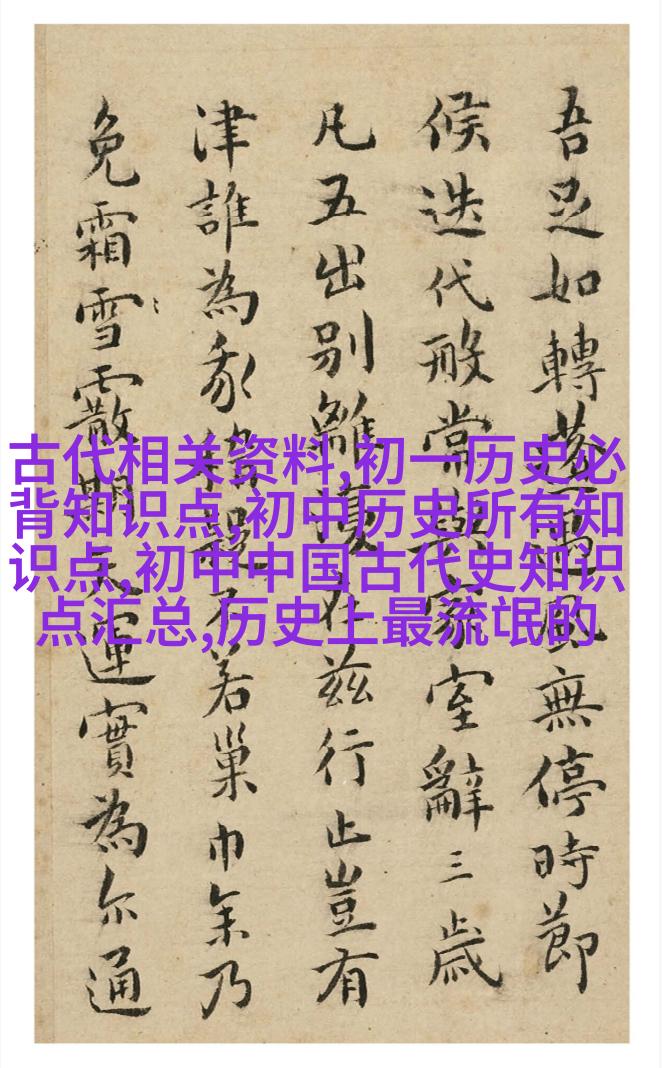 吾足如轉蓬風無停時節
候迭代常家室辭三歲
凡五出別離復在茲行止豈有
津誰為不若巢
免霜雪霰期天運實為尔通
古代相关资料,初一历史必
背知识点,初中历史所有知
识点,初中中国古代史知识
点汇总,历史上最流氓的